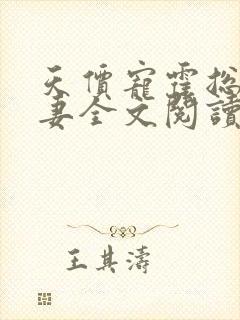 天價寵霆總
妻全文閱讀
王其濤